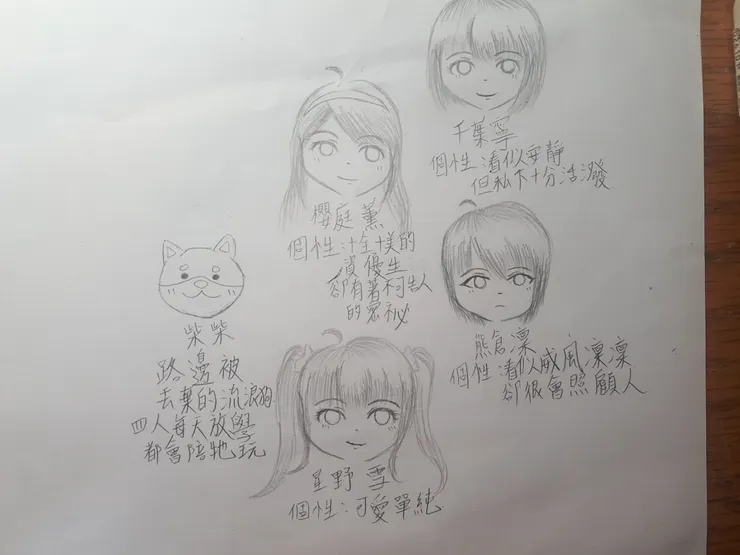 千葉寧
個性:看似安靜
但私下十分活潑
櫻庭薰
個性:十全十美的
資優生
卻有著不可告人
的密祕
熊倉凜
個性:看似威風凜凜
卻很會照顧人
柴柴
路邊被
丟棄的流浪狗
四人每天放學
都會陪牠玩
星野雪
個性:可愛單純